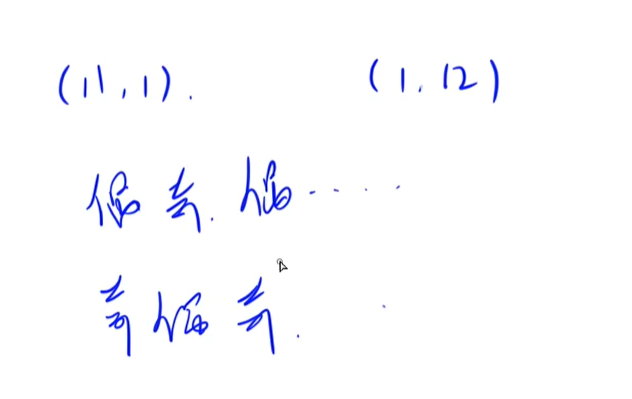 (11,1).  (1,12)
偶奇.偶.....
奇偶奇.